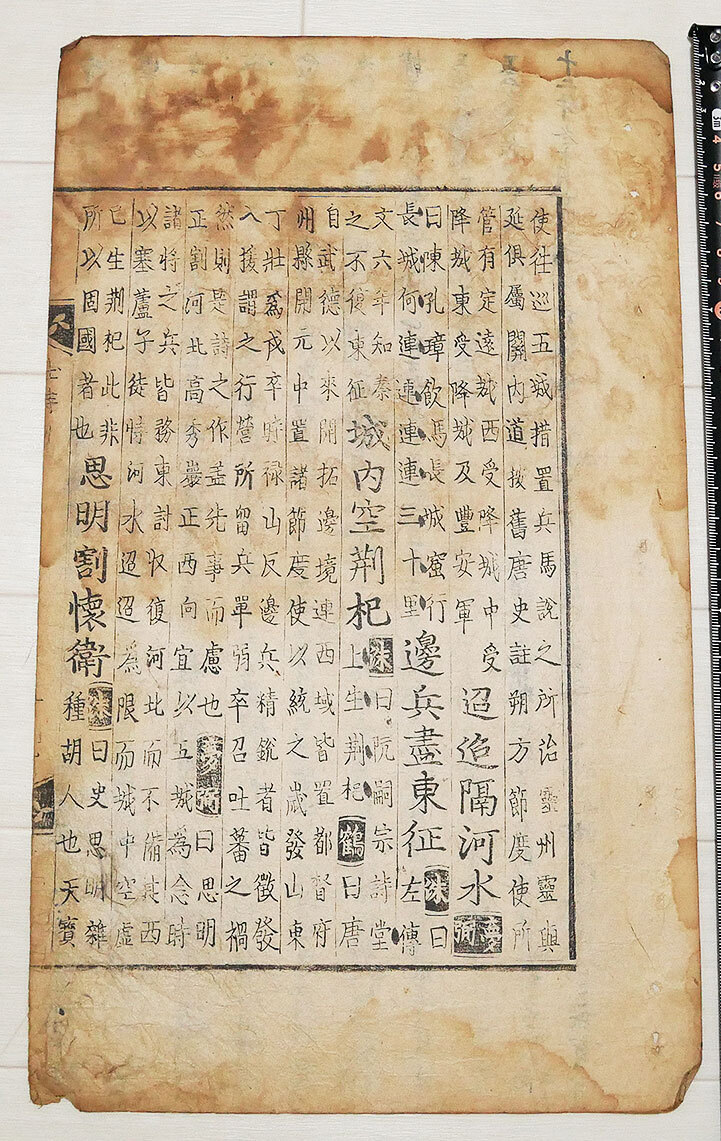 使往巡五城措置兵馬說之所治靈州靈與
延俱屬關內道援舊唐史註朔方節度使所
管有定遠城西受降城中受
降城東受降城及豐安軍
迢迢隔河水
夢弼
曰陳孔璋飲馬長城窟行
長城何連連連連三十里
邊兵盡東征
洙曰
左傳
文六年知秦
之不復東征
城内空荆杞
洙曰阮嗣宗詩堂
上生荆杞鶴曰唐
自武德以來開拓邊境連西域皆置都督府
州縣開元中置諸節度使以統之歲發山東
丁壯爲戍卒時禄山反邊兵精銳者皆徵發
入援謂之行營所留兵單弱卒召吐蕃之禍
然則是詩之作盖先事而慮也夢弼曰思明
正割河北高秀巖正西向宜以五城為念時
諸將之兵皆務東討収復河北而不備其西
以塞蘆子徒恃河水迢迢為限而城中空虛
已生荆杞此非
所以固國者也
思明割懷衛
洙曰史思明雜
種胡人也天寶